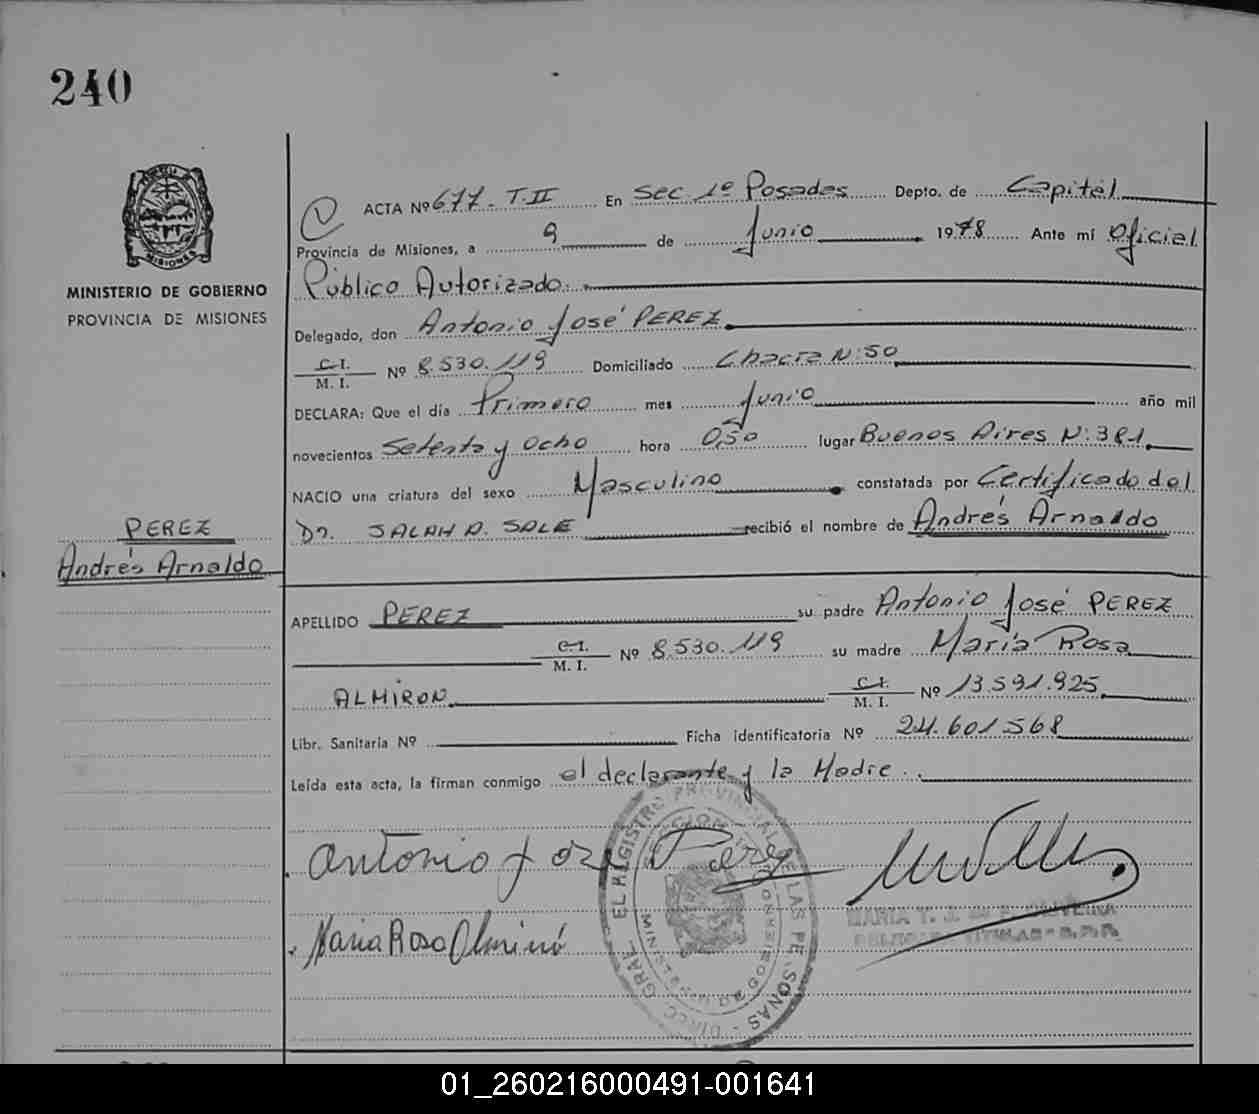 240
V
ACTA Nº 677 - T.II En Sec 1º Posadas Depto. de Capital
Provincia de Misiones, a 9 de Junio 1978 Ante mí Oficial
Público Autorizado.
MINISTERIO DE GOBIERNO
PROVINCIA DE MISIONES
Delegado, don Antonio José PEREZ
C.I. M. I. Nº 8.530.119 Domiciliado Chacra Nº 50
DECLARA: Que el día Primero mes Junio año mil
novecientos Setenta y Ocho hora 0,50 lugar Buenos Aires Nº 381
NACIO una criatura del sexo Masculino constatada por Certificado del
Dr. SALAH A. SALE recibió el nombre de Andrés Arnaldo
PEREZ
Andrés Arnaldo
APELLIDO PEREZ su padre Antonio José PEREZ
C.I. M. I. Nº 8.530.119 su madre María Rosa
ALMIRON C.I. M. I. Nº 13.591.925
Libr. Sanitaria Nº Ficha identificatoria Nº 24.601.568
Leída esta acta, la firman conmigo el declarante y la Madre.
Antonio Jose Perez
Maria Rosa Almirón
MARIA T. J.
DIREC. GRAL. EL REGISTRO PROVINCIAL DE LAS PERSONAS
MISIONES
01_260216000491-001641